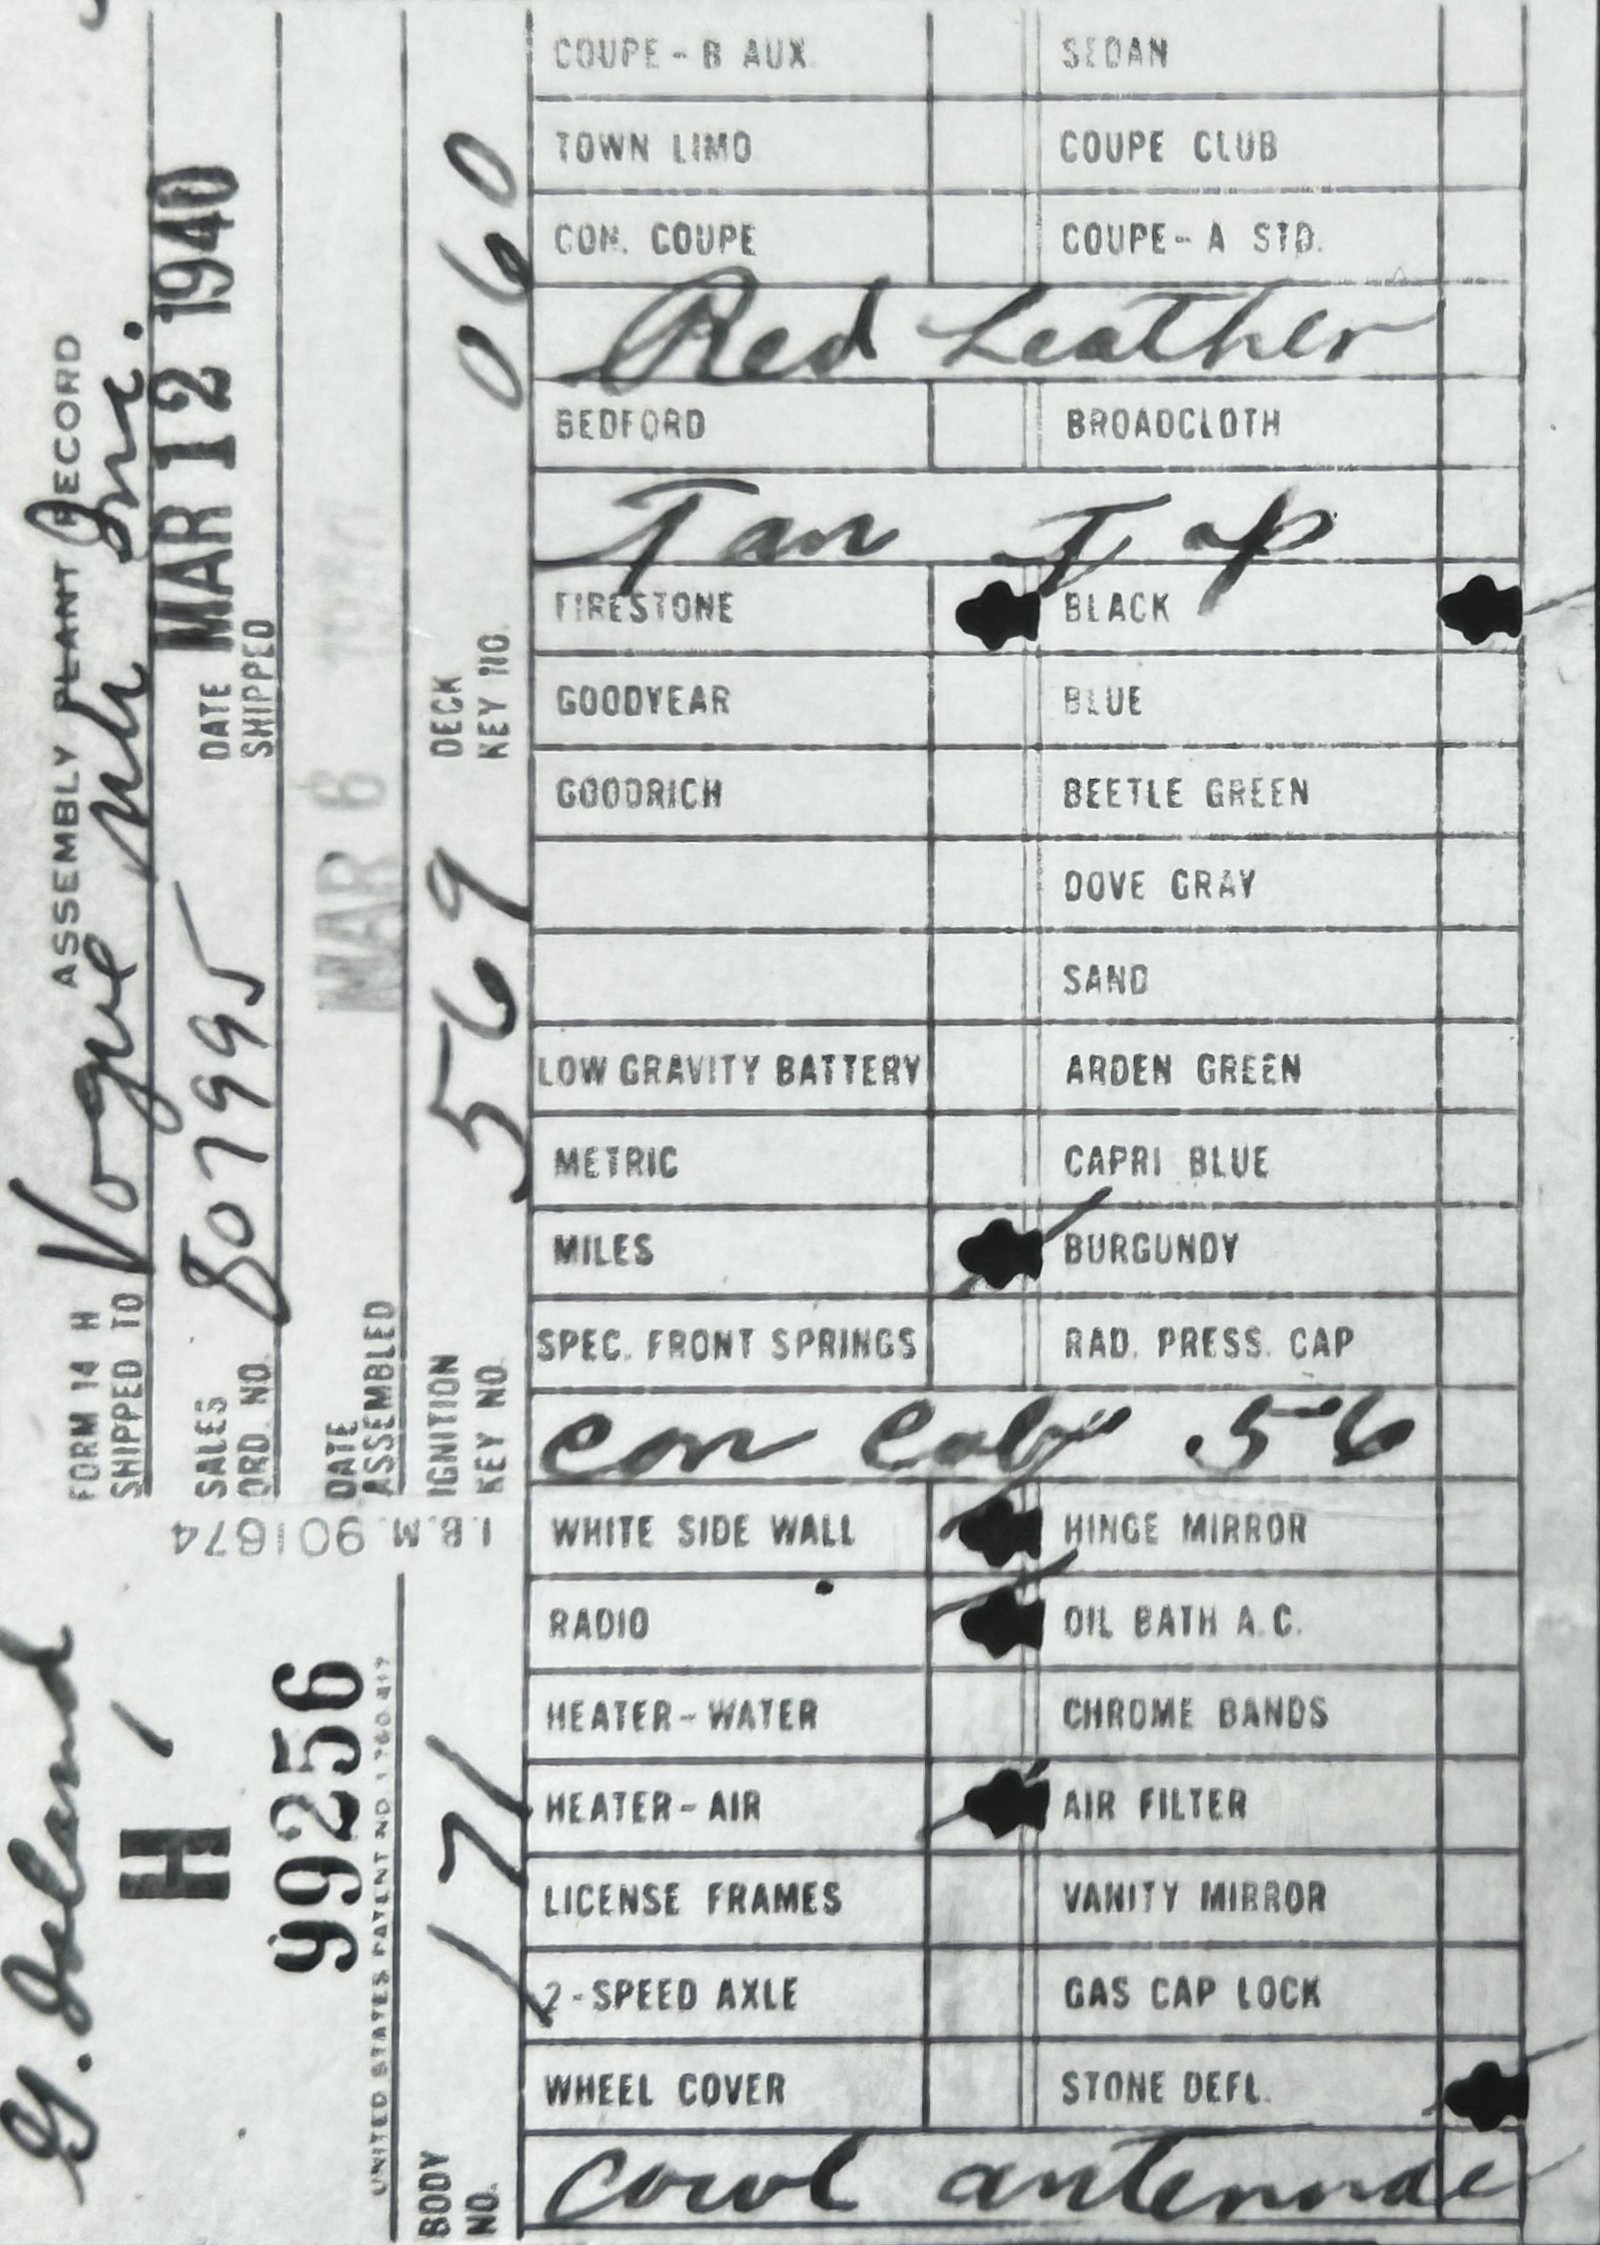 G. Island
H
99256
UNITED STATES PATENT NO. 1,760,417
BODY NO. 171
I.B.M. 901674
FORM 14 H ASSEMBLY PLANT RECORD
SHIPPED TO Vogue
SALES ORD. NO. 807995 DATE SHIPPED MAR 12 1940
DATE ASSEMBLED MAR 6 1940
IGNITION KEY NO. 569 DECK KEY NO. 060
COUPE - B AUX. SEDAN
TOWN LIMO COUPE CLUB
CON. COUPE COUPE - A STD.
Red Leather
BEDFORD BROADCLOTH
Tan Top
FIRESTONE BLACK
GOODYEAR BLUE
GOODRICH BEETLE GREEN
DOVE GRAY
SAND
LOW GRAVITY BATTERY ARDEN GREEN
METRIC CAPRI BLUE
MILES BURGUNDY
SPEC. FRONT SPRINGS RAD. PRESS. CAP
Con Cab 56
WHITE SIDE WALL HINGE MIRROR
RADIO OIL BATH A.C.
HEATER - WATER CHROME BANDS
HEATER - AIR AIR FILTER
LICENSE FRAMES VANITY MIRROR
2 - SPEED AXLE GAS CAP LOCK
WHEEL COVER STONE DEFL.
Cowl antennae